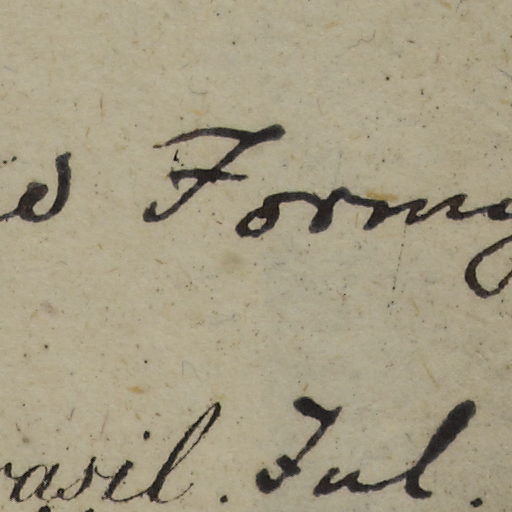 d Formg
rasil. Jul.